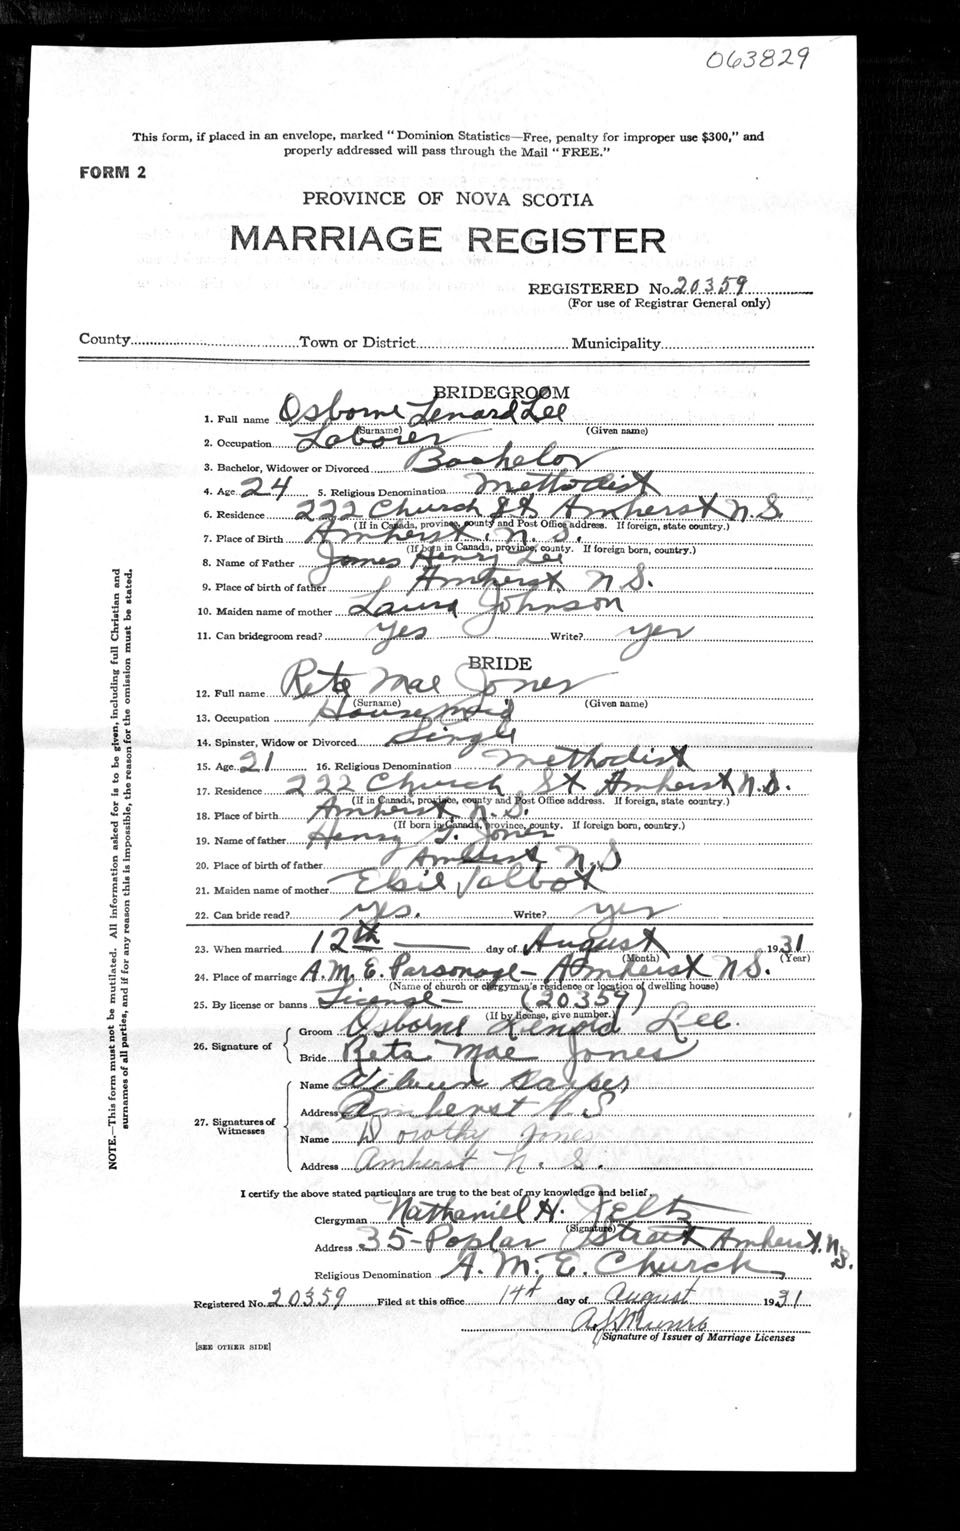 063829
This form, if placed in an envelope, marked "Dominion Statistics—Free, penalty for improper use $300," and
properly addressed will pass through the Mail "FREE."
FORM 2
PROVINCE OF NOVA SCOTIA
MARRIAGE REGISTER
REGISTERED No. 20359
(For use of Registrar General only)
County Town or District Municipality
BRIDEGROOM
1. Full name Osborne Lenard Lee
(Surname) (Given name)
2. Occupation Laborer
3. Bachelor, Widower or Divorced Bachelor
4. Age 24 5. Religious Denomination Methodist
6. Residence 222 Church St Amherst N.S.
(If in Canada, province, county and Post Office address. If foreign, state country.)
7. Place of Birth Amherst, N.S.
(If born in Canada, province, county. If foreign born, country.)
8. Name of Father James Henry Lee
9. Place of birth of father Amherst N S.
10. Maiden name of mother Laura Johnson
11. Can bridegroom read? Yes Write? yes
BRIDE
12. Full name Reta Mae Jones
(Surname) (Given name)
13. Occupation Housemaid
14. Spinster, Widow or Divorced Single
15. Age 21 16. Religious Denomination Methodist
17. Residence 222 Church St Amherst N.S.
(If in Canada, province, county and Post Office address. If foreign, state country.)
18. Place of birth Amherst N.S.
(If born in Canada, province, county. If foreign born, country.)
19. Name of father Henry J. Jones
20. Place of birth of father Amherst, N.S
21. Maiden name of mother Elsie Talbot
22. Can bride read? yes. Write? yes
23. When married 12th day of August 1931
(Month) (Year)
24. Place of marriage A.M.E. Parsonage - Amherst N.S.
(Name of church or clergyman's residence or location of dwelling house)
25. By license or banns License - (20359)
(If by license, give number.)
26. Signature of Groom Osborne Lenard Lee.
Bride Reta Mae Jones
27. Signatures of Witnesses Name
Address Amherst N.S
Name Dorothy Jones
Address Amherst N. S.
I certify the above stated particulars are true to the best of my knowledge and belief.
Clergyman Nathaniel H. Jeltz
(Signature)
Address 35-Poplar Street Amherst, N.S.
Religious Denomination A.M.E. Church
Registered No. 20359 Filed at this office 14th day of August 1931
A J Munro
Signature of Issuer of Marriage Licenses
[SEE OTHER SIDE]
NOTE.—This form must not be mutilated. All information asked for is to be given, including full Christian and
surnames of all parties, and if for any reason this is impossible, the reason for the omission must be stated.